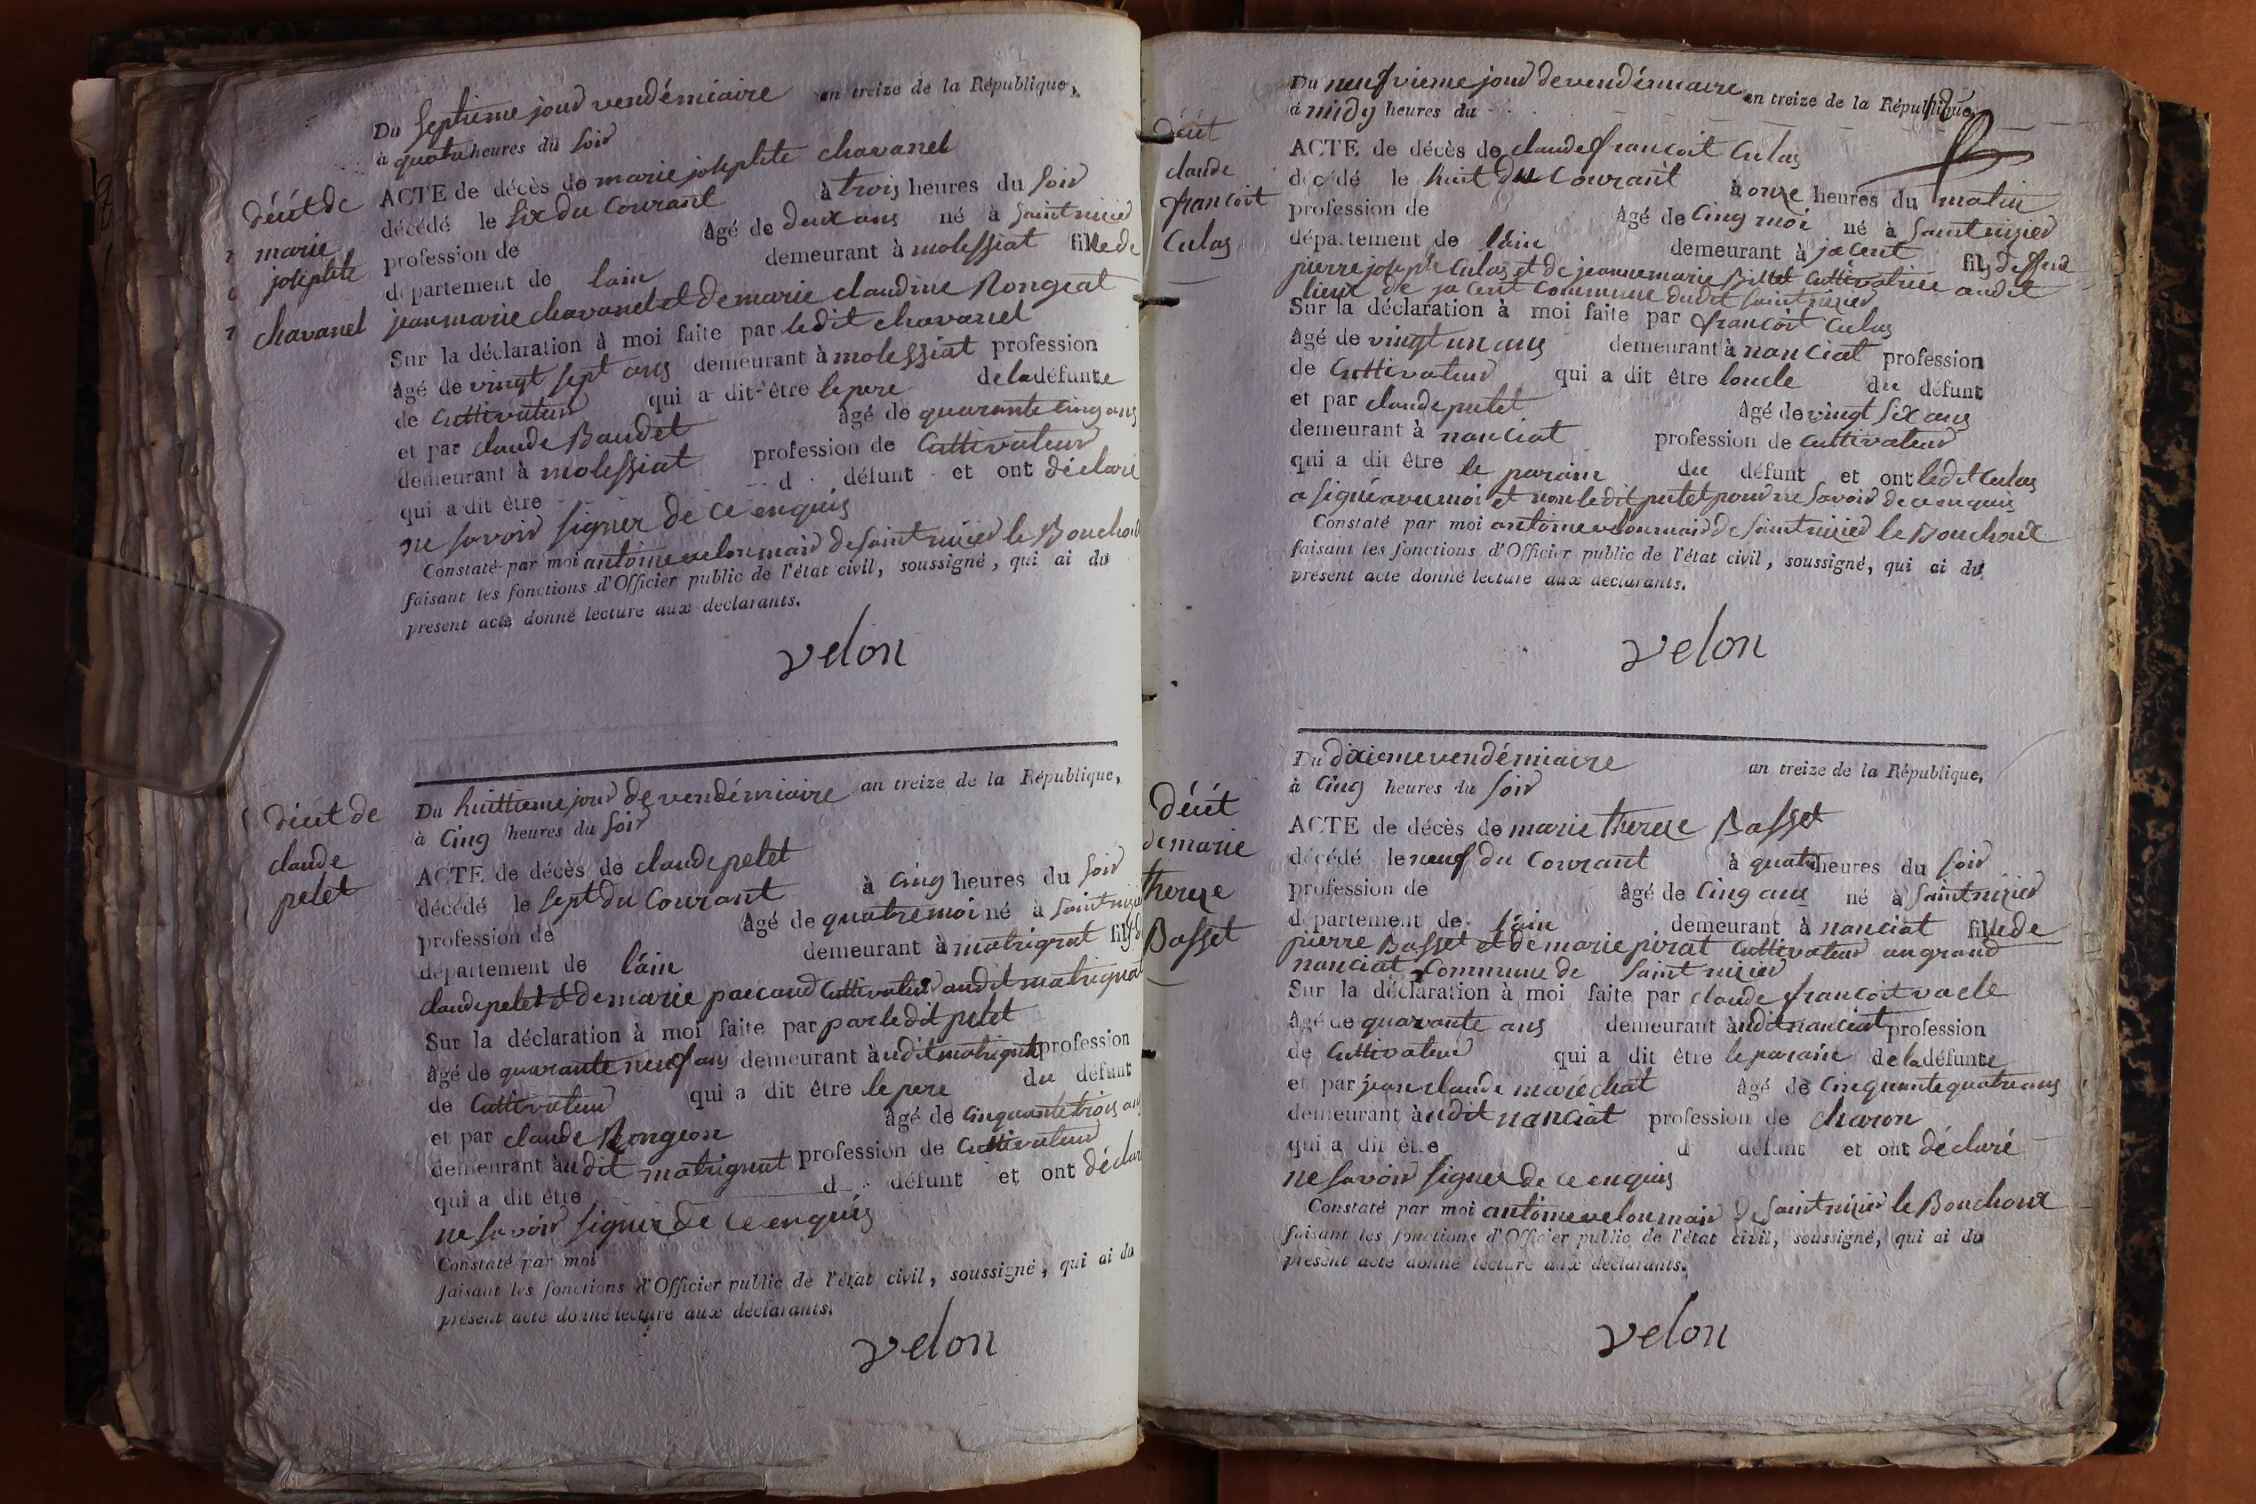 Du septieme jour vendémiaire an treize de la République,
à quatre heures du soir
décét de
marie
josephte
chavanel
ACTE de décès de marie josephte chavanel
décédé le six du Courant à trois heures du soir
profession de âgé de deux ans né à saint nizier
département de lain demeurant à molessiat fille de
jean marie chavanel et de marie claudine Rongeat
Sur la déclaration à moi faite par ledit chavanel
âgé de vingt sept ans demeurant à molessiat profession
de Cultivateur qui a dit être le pere de la défunte
et par claude Baudet âgé de quarante cinq ans
demeurant à molessiat profession de Cultivateur
qui a dit être d défunt et ont déclaré
ne savoir signer de ce enquis
Constaté par moi antoine velon mair de saint nizier le Bouchoux
faisant les fonctions d'Officier public de l'état civil, soussigné, qui ai du
présent acte donné lecture aux déclarants.
velon
Du huittieme jour de vendémiaire an treize de la République,
à Cinq heures du soir
décét de
claude
pelet
ACTE de décès de claude pelet
décédé le sept du Courant à Cinq heures du soir
profession de âgé de quatre moi né à saint nizier
département de l'ain demeurant à matrignat fils de
claude pelet et de marie paccaud Cultivateur audit matrignat
Sur la déclaration à moi faite par par ledit pelet
âgé de quarante neuf ans demeurant à udit matrignat profession
de Cultivateur qui a dit être le pere du défunt
et par claude Rongeon âgé de cinquante trois ans
demeurant à udit matrignat profession de Cultivateur
qui a dit être d défunt et ont déclaré
ne savoir signer de ce enquis
Constaté par moi
faisant les fonctions d'Officier public de l'état civil, soussigné, qui ai du
présent acte donné lecture aux déclarants.
velon
Du neufvieme jour de vendémiaire an treize de la République,
à midy heures du
décét
claude
francoit
Culas
ACTE de décès de claude francoit Culas
décédé le huit du Courant à onze heures du matin
profession de âgé de Cinq moi né à saint nizier
département de l'ain demeurant à jacent fils de feu
pierre joseph Culas et de jeanne marie Billet Cultivatrice audit
lieux de jacent Commune dudit saint nizier
Sur la déclaration à moi faite par francoit Culas
âgé de vingt un ans demeurant à nanciat profession
de Cultivateur qui a dit être loncle du défunt
et par claude pelet âgé de vingt six ans
demeurant à nanciat profession de Cultivateur
qui a dit être le parain du défunt et ont ledit Culas
a signé avec moi et non ledit pelet pour ne savoir de ce enquis
Constaté par moi antoine velon mair de saint nizier le Bouchoux
faisant les fonctions d'Officier public de l'état civil, soussigné, qui ai du
présent acte donné lecture aux déclarants.
velon
Du dixieme vendémiaire an treize de la République,
à Cinq heures du soir
Décét
de marie
therese
Basset
ACTE de décès de marie therese Basset
décédé le neuf du Courant à quatre heures du soir
profession de âgé de Cinq ans né à saint nizier
département de l'ain demeurant à nanciat fille de
pierre Basset et de marie pirat Cultivateur au grand
nanciat Commune de saint nizier
Sur la déclaration à moi faite par claude francoit vacle
âgé de quarante ans demeurant à udit nanciat profession
de Cultivateur qui a dit être le parain de la défunte
et par jean claude maréchat âgé de Cinquante quatre ans
demeurant à udit nanciat profession de charon
qui a dit être d défunt et ont déclaré
ne savoir signer de ce enquis
Constaté par moi antoine velon mair de saint nizier le Bouchoux
faisant les fonctions d'Officier public de l'état civil, soussigné, qui ai du
présent acte donné lecture aux déclarants.
velon